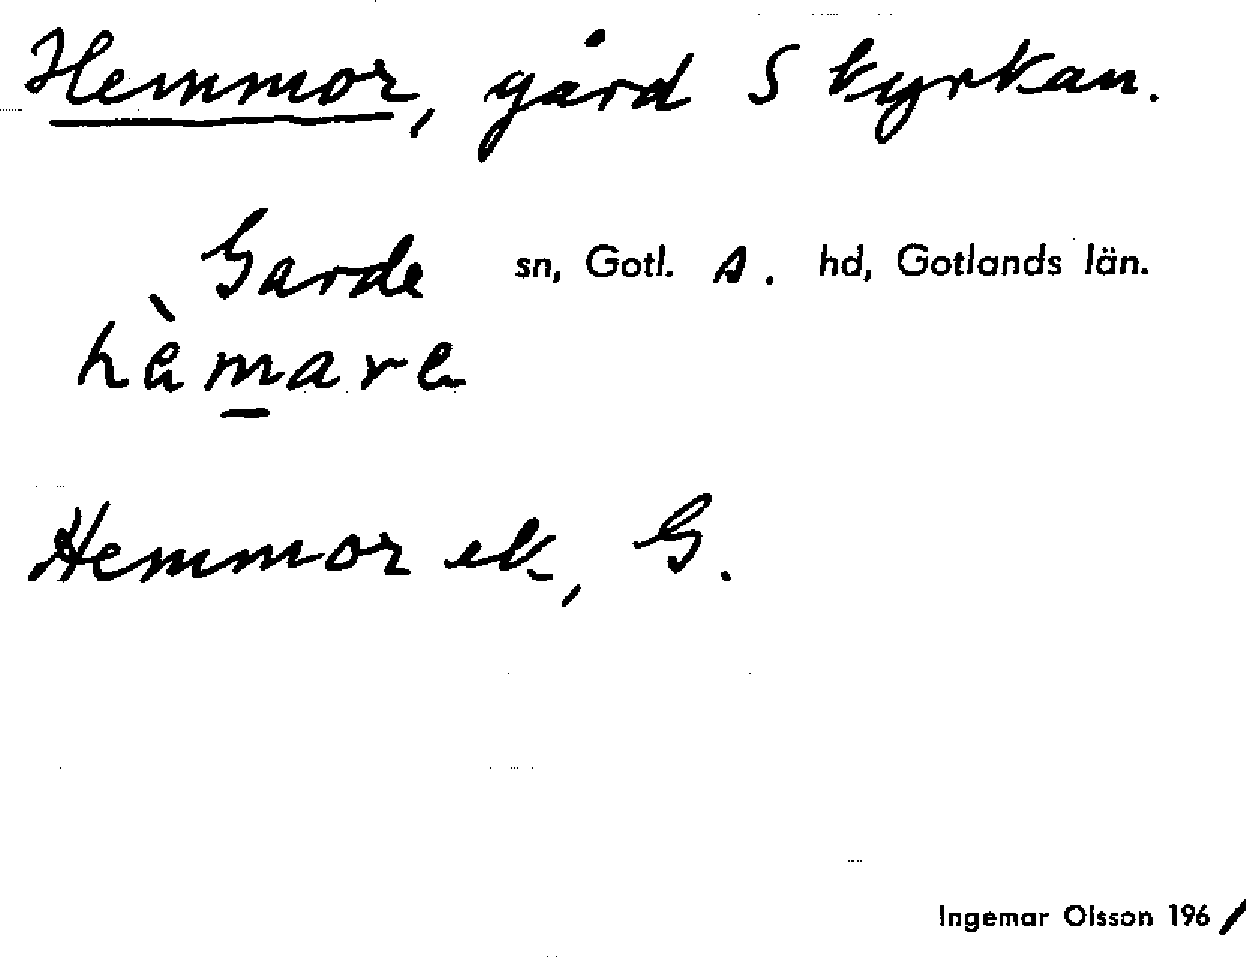 Hemmor, gård S kyrkan.
Garde sn, Gotl. s. hd, Gotlands län.
hàmare
Hemmor ek, G.
Ingemar Olsson 1961